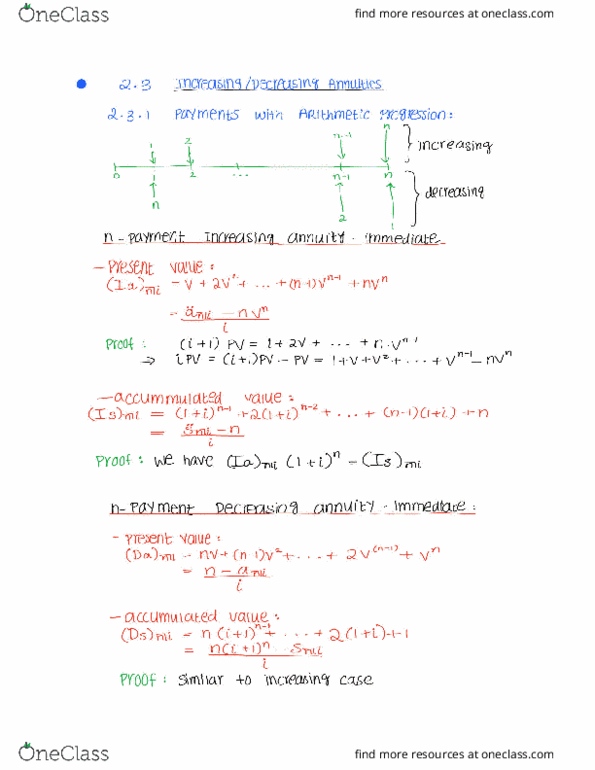 OneClass
find more resources at oneclass.com
2.3 Increasing/Decreasing Annuities
2.3.1 Payments with Arithmetic Progression:
1 2 n-1 n
increasing
0 1 2 ... n-1 n
decreasing
n 2 1
n-payment increasing annuity-immediate
- Present value:
(Ia)n̅|i = v + 2v² + ... + (n-1)vⁿ⁻¹ + nvⁿ
= än̅|i - nvⁿ
i
Proof: (i+1) PV = 1 + 2v + ... + n·vⁿ⁻¹
⇒ iPV = (i+1)PV - PV = 1+v+v²+ ... + vⁿ⁻¹ - nvⁿ
- accummulated value:
(Is)n̅|i = (1+i)ⁿ⁻¹ + 2(1+i)ⁿ⁻² + ... + (n-1)(1+i) + n
= s̈n̅|i - n
i
Proof: we have (Ia)n̅|i (1+i)ⁿ = (Is)n̅|i
n-payment Decreasing annuity-immediate:
- present value:
(Da)n̅|i = nv+(n-1)v²+ ... + 2v⁽ⁿ⁻¹⁾ + vⁿ
= n - an̅|i
i
- accumulated value:
(Ds)n̅|i = n(i+1)ⁿ⁻¹ + ... + 2(1+i)+1
= n(i+1)ⁿ - sn̅|i
i
Proof: similiar to increasing case
OneClass
find more resources at oneclass.com